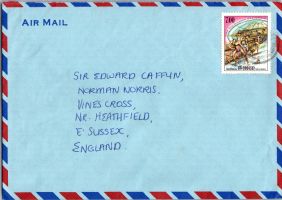 AIR MAIL
7.00
SIR EDWARD CAFFYN,
NORMAN NORRIS.
VINES CROSS,
NR. HEATHFIELD,
E SUSSEX,
ENGLAND.